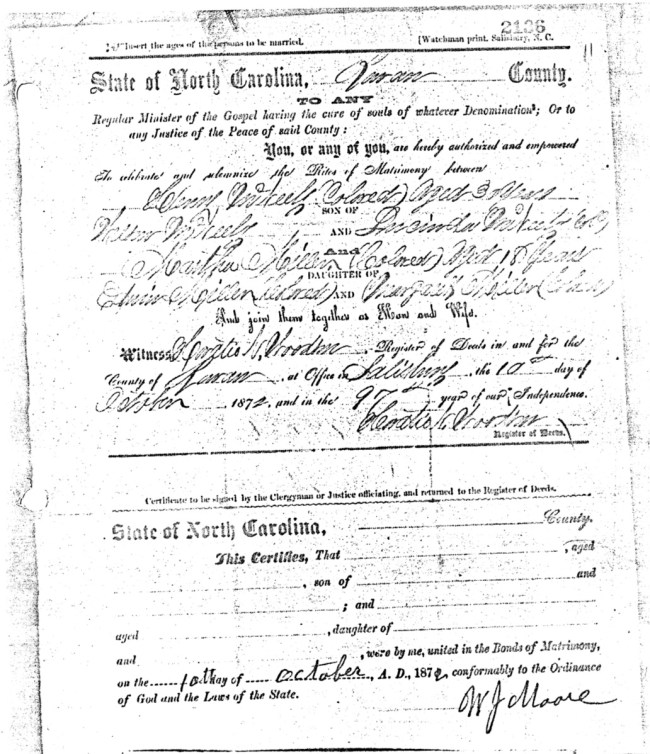 2126
Insert the ages of the persons to be married. [Watchman print, Salisbury, N. C.
State of North Carolina, Rowan County.
TO ANY
Regular Minister of the Gospel having the cure of souls of whatever Denomination; Or to
any Justice of the Peace of said County:
You, or any of you, are hereby authorized and empowered
To celebrate and solemnize the Rites of Matrimony between
Henny (Colored) Aged Years
SON OF
AND Lucinda
And
Martha Miller (Colored) Aged 18 Years
DAUGHTER OF
Edwin Miller (Colored) AND Margaret Miller (Colored)
And join them together as Man and Wife.
Witness Horatio N. Woodson Register of Deeds in and for the
County of Rowan at Office in Salisbury the 10th day of
October 1872, and in the 97th year of our Independence.
Horatio N. Woodson
Register of Deeds.
Certificate to be signed by the Clergyman or Justice officiating, and returned to the Register of Deeds.
State of North Carolina, County.
This Certifies, That , aged
, son of and
; and
aged , daughter of
and , were by me, united in the Bonds of Matrimony,
on the 10th day of October, A. D., 1872, conformably to the Ordinance
of God and the Laws of the State.
W J Moore